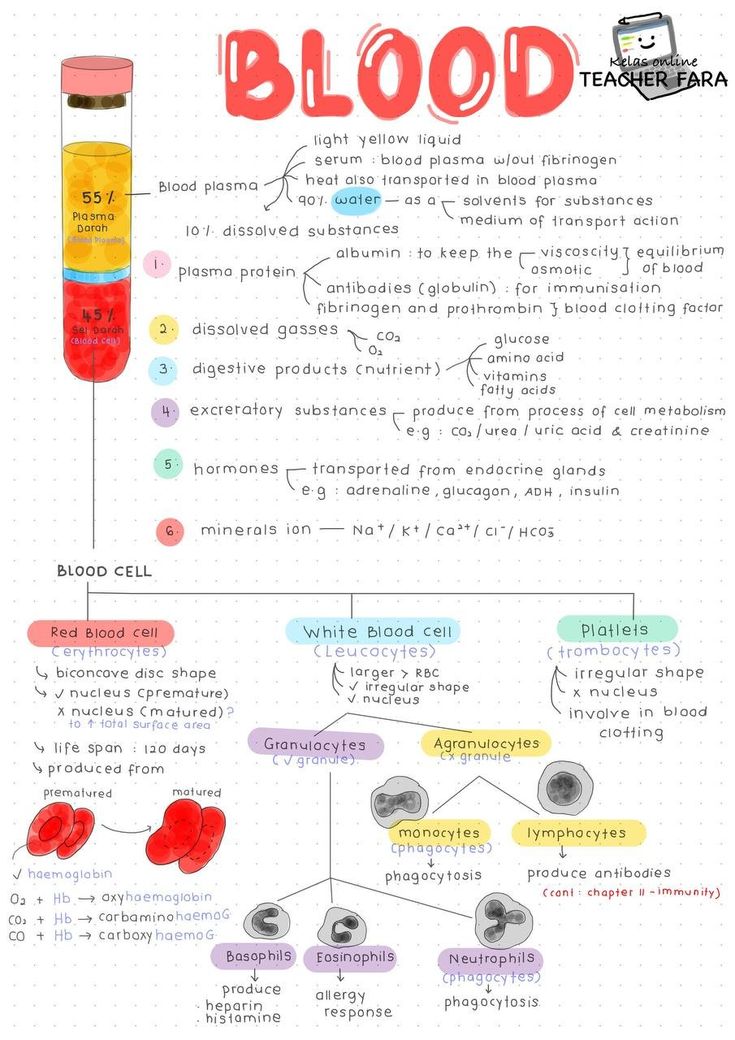 BLOOD
Kelas online
TEACHER FARA
55%
Plasma
Darah
(Blood Plasma)
45%
Sel Darah
(Blood Cell)
Blood plasma
light yellow liquid
serum : blood plasma w/out fibrinogen
heat also transported in blood plasma
90% water — as a
solvents for substances
medium of transport action
10% dissolved substances
1. plasma protein
albumin : to keep the
viscosity
osmotic
equilibrium
of blood
antibodies (globulin) : for immunisation
fibrinogen and prothrombin } blood clotting factor
2. dissolved gasses
CO2
O2
3. digestive products (nutrient)
glucose
amino acid
vitamins
fatty acids
4. excreratory substances
produce from process of cell metabolism
e.g : CO2 / urea / uric acid & creatinine
5. hormones
transported from endocrine glands
e.g : adrenaline, glucagon, ADH, insulin
6. minerals ion — Na+ / K+ / Ca2+ / Cl- / HCO3-
BLOOD CELL
Red Blood cell
(erythrocytes)
↳ biconcave disc shape
↳ ✓ nucleus (premature)
x nucleus (matured)?
to ↑ total surface area
↳ life span : 120 days
↳ produced from
prematured
matured
✓ haemoglobin
O2 + Hb → oxyhaemoglobin
CO2 + Hb → carbaminohaemoG
CO + Hb → carboxyhaemoG
White Blood cell
(Leucocytes)
larger > RBC
✓ irregular shape
✓ nucleus
Granulocytes
(✓ granule)
Agranulocytes
(x granule
monocytes
(phagocytes)
phagocytosis
lymphocytes
produce antibodies
(cont : chapter 11 - immunity)
Basophils
produce
. heparin
. histamine
Eosinophils
allergy
response
Neutrophils
(phagocytes)
phagocytosis
Platlets
(trombocytes)
irregular shape
x nucleus
involve in blood
clotting